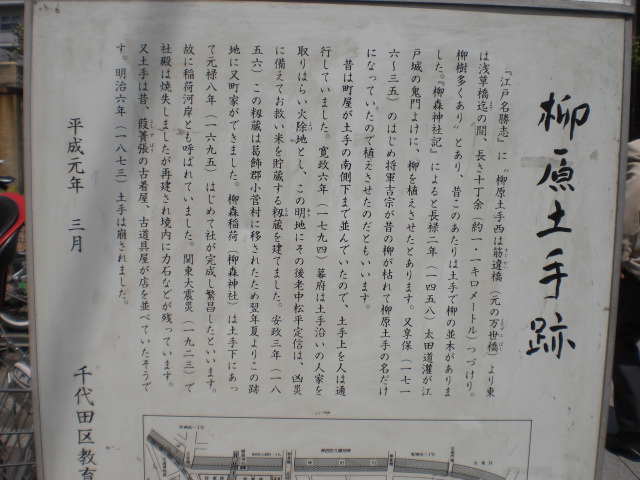 柳原土手跡
『江戸名勝志』に〝柳原土手西は筋違橋（元の万世橋）より東
は浅草橋迄の間、長さ十丁余（約一・一キロメートル）つづけり。
柳樹多くあり〟とあり、昔このあたりは土手で柳の並木がありま
した。『柳森神社記』によると長禄二年（一四五八）太田道灌が江
戸城の鬼門よけに、柳を植えさせたとあります。又享保（一七一
六〜三五）のはじめ将軍吉宗が昔の柳が枯れて柳原土手の名だけ
になっていたので植えさせたのだともいいます。
昔は町屋が土手の南側下まで並んでいたので、土手上を人は通
行していました。寛政六年（一七九四）幕府は土手沿いの人家を
取りはらい火除地とし、この明地にその後老中松平定信は、凶災
に備えてお救い米を貯蔵する籾蔵を建てました。安政三年（一八
五六）この籾蔵は葛飾郡小菅村に移されたため翌年夏よりこの跡
地に又町家ができました。柳森稲荷（柳森神社）は土手下にあっ
て元禄八年（一六九五）はじめて社が完成し繁昌したといいます。
故に稲荷河岸とも呼ばれていました。関東大震災（一九二三）で
社殿は焼失しましたが再建され境内に力石などが残っています。
又土手は昔、葭簀張の古着屋、古道具屋が店を並べていたそうで
す。明治六年（一八七三）土手は崩されました。
平成元年 三月
千代田区教育